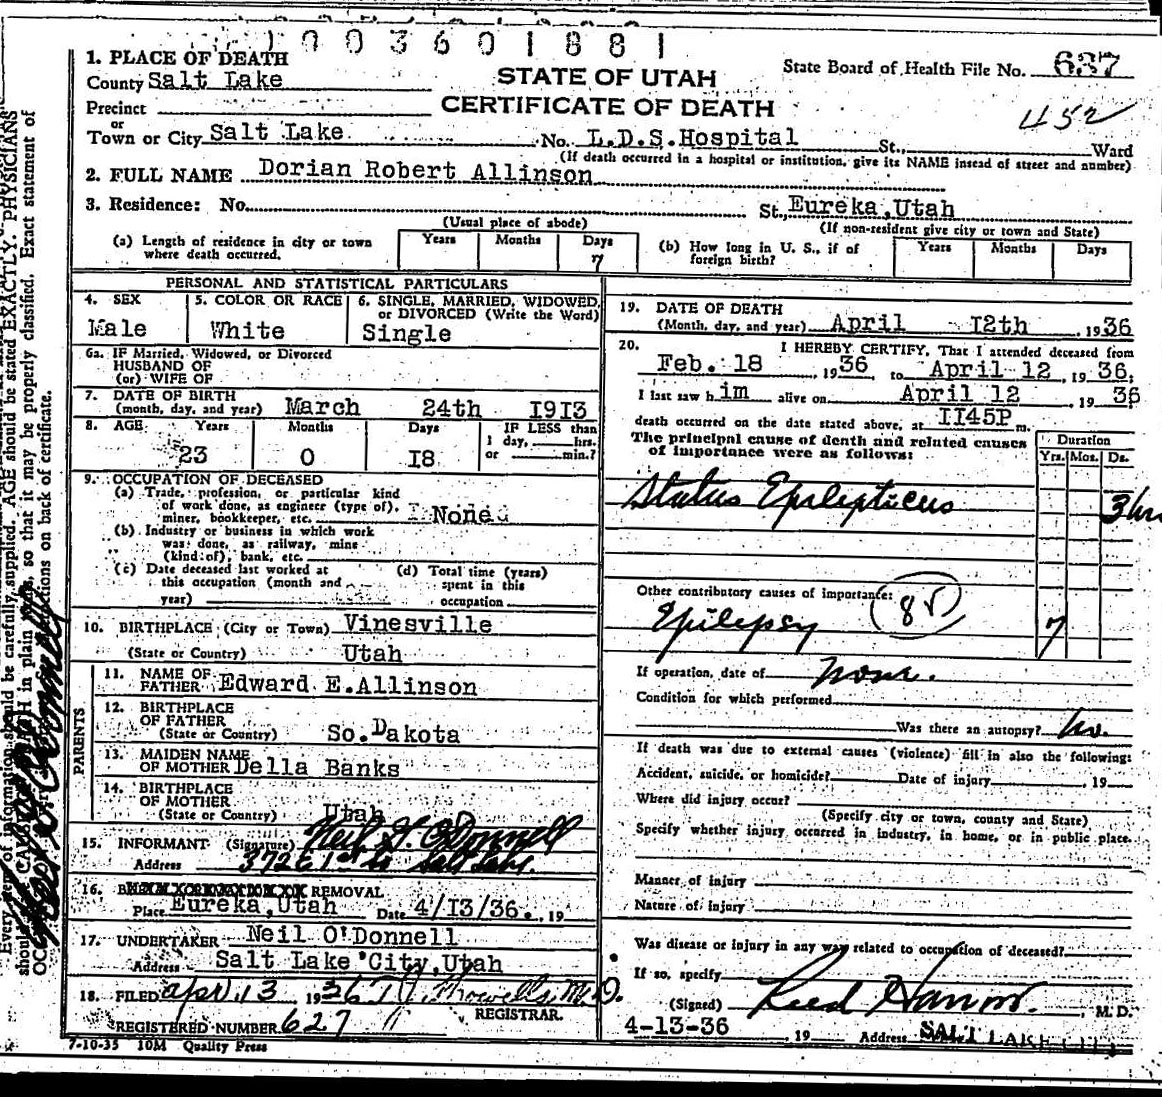 1003601881
1. PLACE OF DEATH
County Salt Lake
STATE OF UTAH
CERTIFICATE OF DEATH
State Board of Health File No. 637
452
Precinct
or
Town or City Salt Lake No. L.D.S. Hospital St., Ward
(If death occurred in a hospital or institution, give its NAME instead of street and number)
2. FULL NAME Dorian Robert Allinson
3. Residence: No. St., Eureka, Utah
(Usual place of abode)
(If non-resident give city or town and State)
(a) Length of residence in city or town where death occurred. Years Months Days 7
(b) How long in U. S., if of foreign birth? Years Months Days
PERSONAL AND STATISTICAL PARTICULARS
4. SEX Male
5. COLOR OR RACE White
6. SINGLE, MARRIED, WIDOWED, or DIVORCED (Write the Word) Single
6a. IF Married, Widowed, or Divorced
HUSBAND OF
(or) WIFE OF
7. DATE OF BIRTH
(month, day, and year) March 24th 1913
8. AGE Years Months Days IF LESS than
1 day, hrs.
or min.?
23 0 I8
9. OCCUPATION OF DECEASED
(a) Trade, profession, or particular kind
of work done, as engineer (type of),
miner, bookkeeper, etc. None
(b) Industry or business in which work
was done, as railway, mine
(kind of), bank, etc.
(c) Date deceased last worked at
this occupation (month and
year)
(d) Total time (years)
spent in this
occupation
10. BIRTHPLACE (City or Town) Vinesville
(State or Country) Utah
PARENTS
11. NAME OF
FATHER Edward E. Allinson
12. BIRTHPLACE
OF FATHER
(State or Country) So. Dakota
13. MAIDEN NAME
OF MOTHER Della Banks
14. BIRTHPLACE
OF MOTHER
(State or Country) Utah
15. INFORMANT (Signature) Neil G. O'Donnell
Address 372 E 1st So Salt Lake.
16. REMOVAL
Place Eureka, Utah Date 4/13/36. , 19
17. UNDERTAKER Neil O'Donnell
Address Salt Lake City, Utah
18. FILED Apr. 13 1936 M.D.
REGISTRAR.
REGISTERED NUMBER 627
7-10-35 10M Quality Press
19. DATE OF DEATH
(Month, day, and year) April I2th , 1936
20. I HEREBY CERTIFY, That I attended deceased from
Feb. 18 , 1936 to April 12 , 1936.
I last saw h im alive on April 12 , 19 36
death occurred on the date stated above, at II45P m.
The principal cause of death and related causes
of importance were as follows:
Duration
Yrs. Mos. Ds.
Status Epilepticus 3 hrs
Other contributory causes of importance:
85
Epilepsy 7
If operation, date of none.
Condition for which performed
Was there an autopsy? no.
If death was due to external causes (violence) fill in also the following:
Accident, suicide, or homicide? Date of injury , 19
Where did injury occur?
(Specify city or town, county and State)
Specify whether injury occurred in industry, in home, or in public place.
Manner of injury
Nature of injury
Was disease or injury in any way related to occupation of deceased?
If so, specify
(Signed) Reed Harrow. , M. D.
4-13-36 , 19 Address SALT LAKE CITY